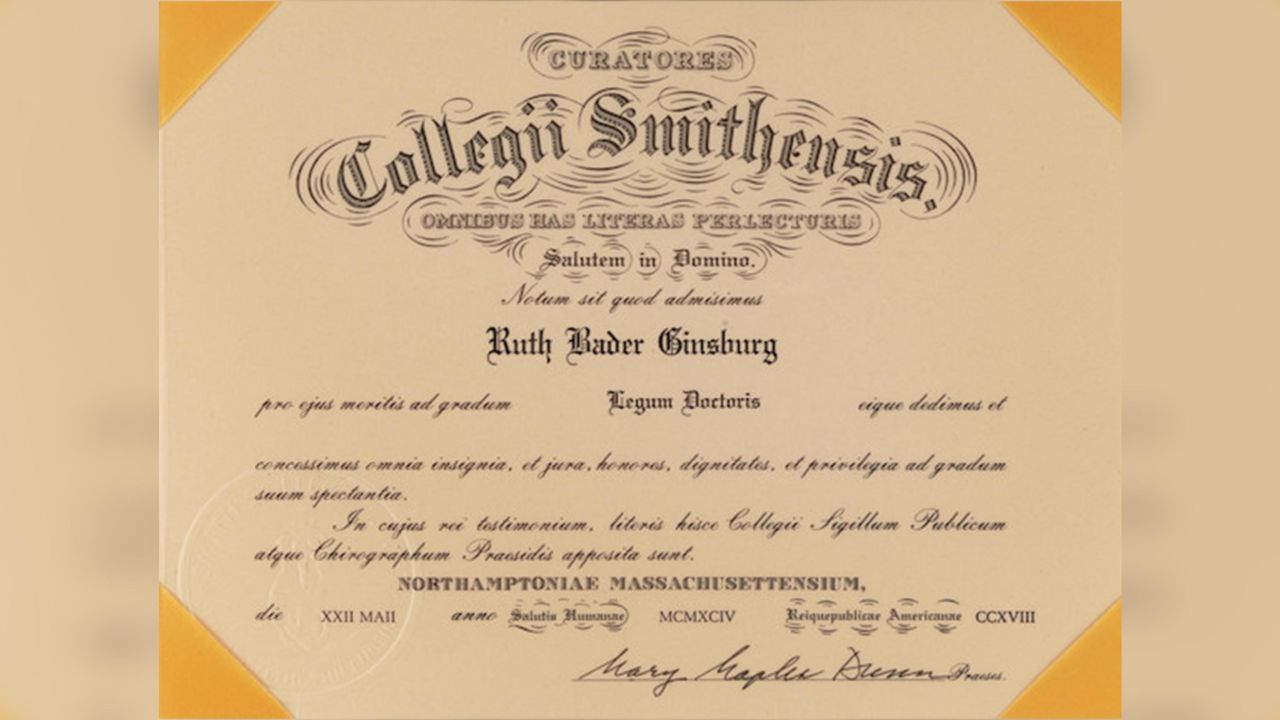 CURATORES
Collegii Smithensis,
OMNIBUS HAS LITERAS PERLECTURIS
Salutem in Domino.
Notum sit quod admisimus
Ruth Bader Ginsburg
pro ejus meritis ad gradum Legum Doctoris eique dedimus et
concessimus omnia insignia, et jura, honores, dignitates, et privilegia ad gradum
suum spectantia.
In cujus rei testimonium, literis hisce Collegii Sigillum Publicum
atque Chirographum Praesidis apposita sunt.
NORTHAMPTONIAE MASSACHUSETTENSIUM,
die XXII MAII anno Salutis Humanae MCMXCIV Reiquepublicae Americanae CCXVIII
Mary Maples Dunn Praeses.